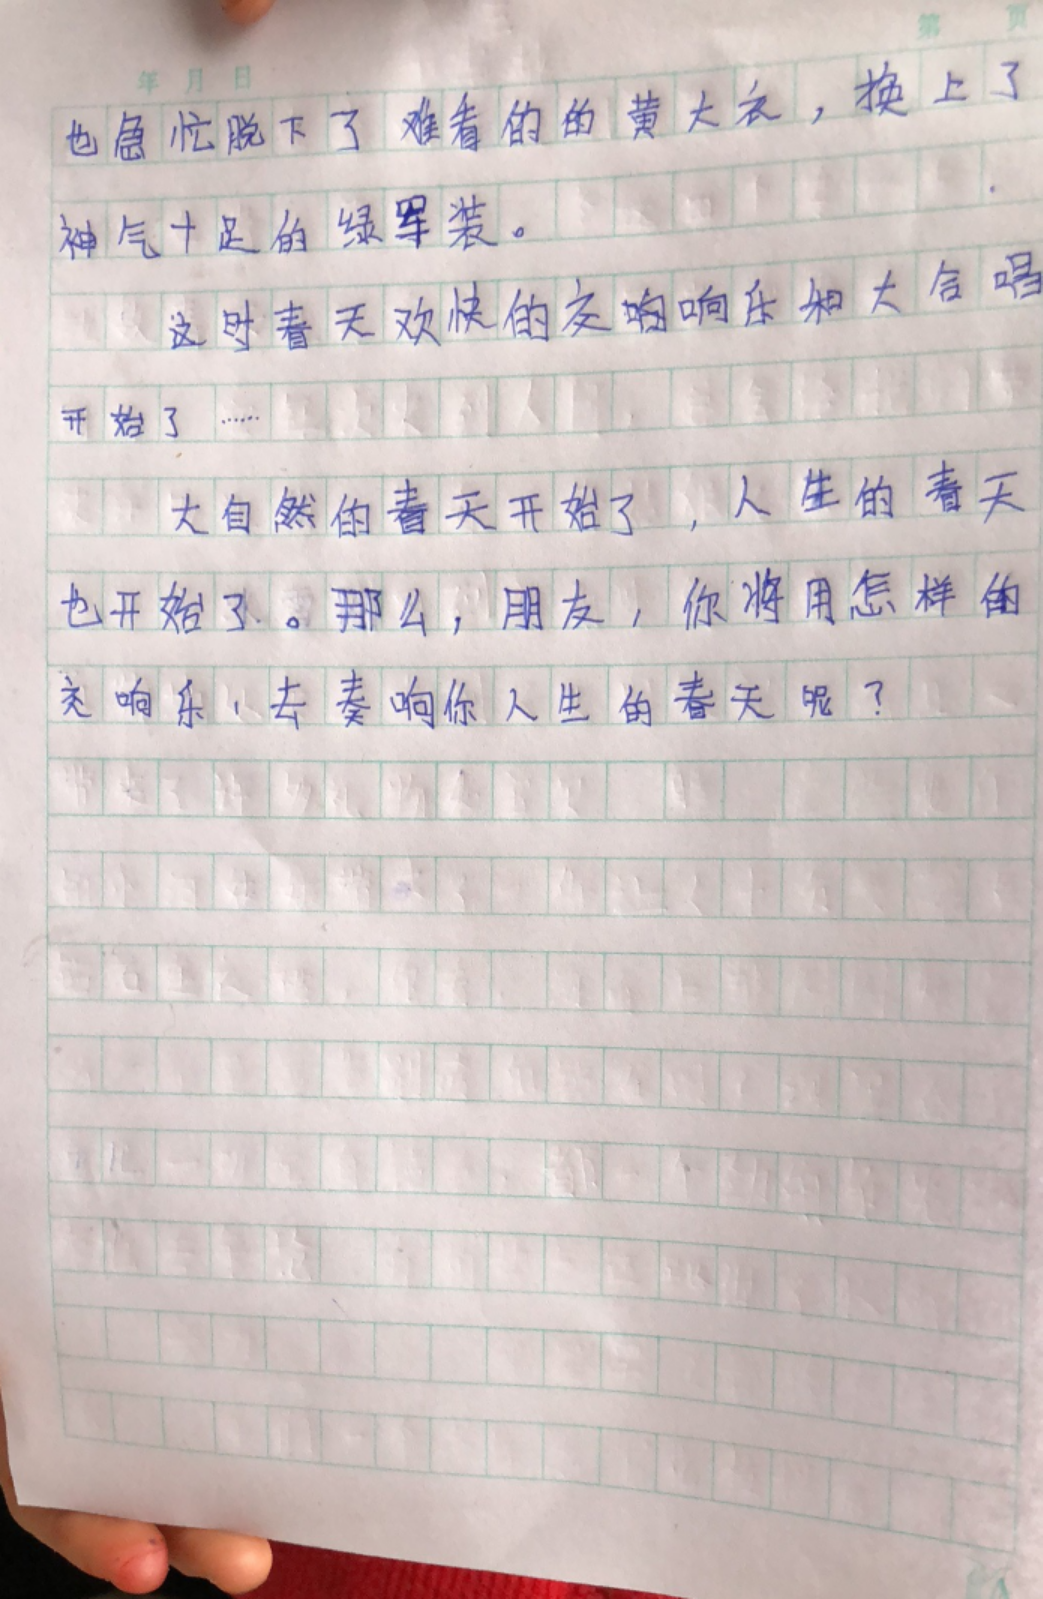 第 页
年 月 日
也急忙脱下了难看的的黄大衣，换上了
神气十足的绿军装。
这时春天欢快的交响响乐和大合唱
开始了……
大自然的春天开始了，人生的春天
也开始了。那么，朋友，你将用怎样的
交响乐，去奏响你人生的春天呢？